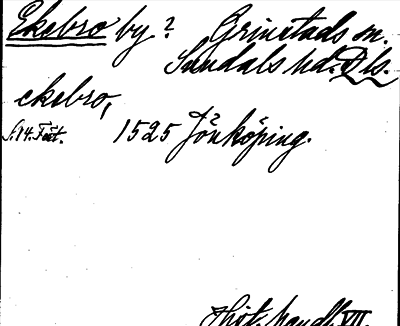 Ekebro by? Grinstads sn.
Sundals hd. Dls.
ekebro,
1525 Jönköping.
Thött. handl. VII.